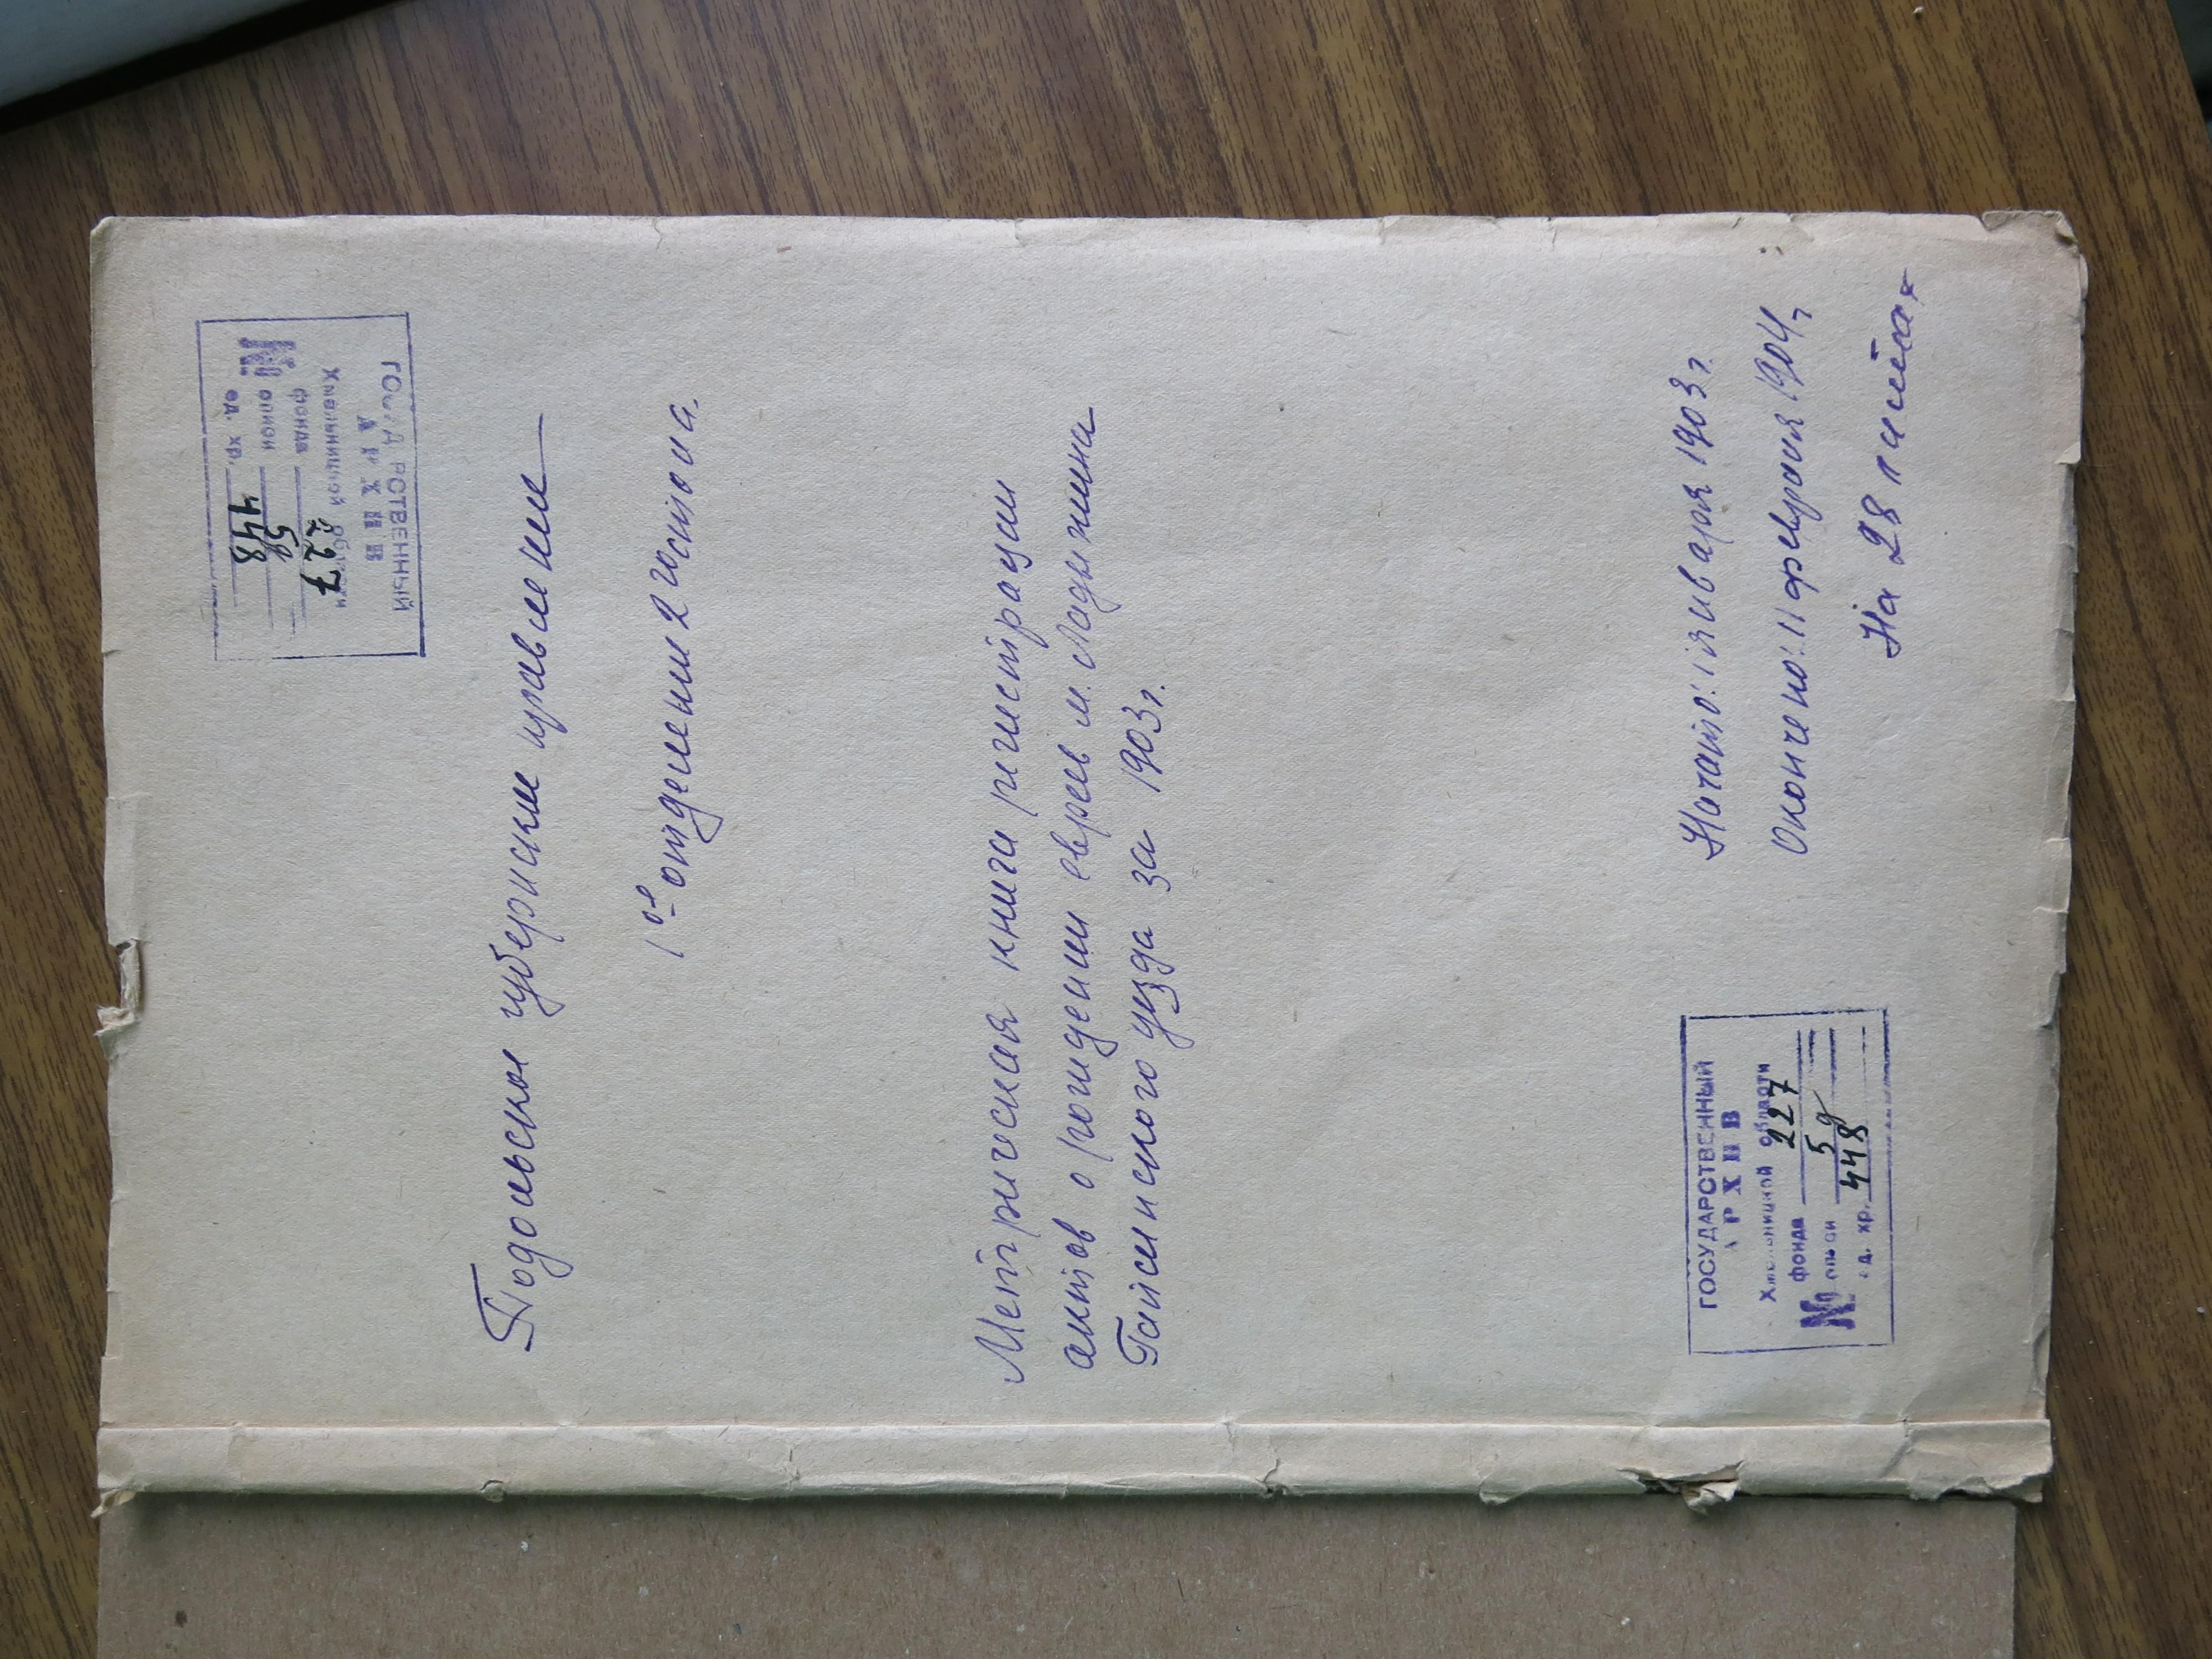 ГОСУДАРСТВЕННЫЙ
АРХИВ
Хмельницкой области
фонда 227
№ описи 5д
ед. хр. 448
Подольское губернское правление
1ое отделение 2 го стола.
Метрическая книга регистрации
актов о рождении евреев м. Ладыжина
Гайсинского уезда за 1903г.
Начато: 1 января 1903 г.
Окончено: 11 февраля 1904 г.
На 28 листах
ГОСУДАРСТВЕННЫЙ
АРХИВ
Хмельницкой области
фонда 227
№ описи 5д
ед. хр. 448